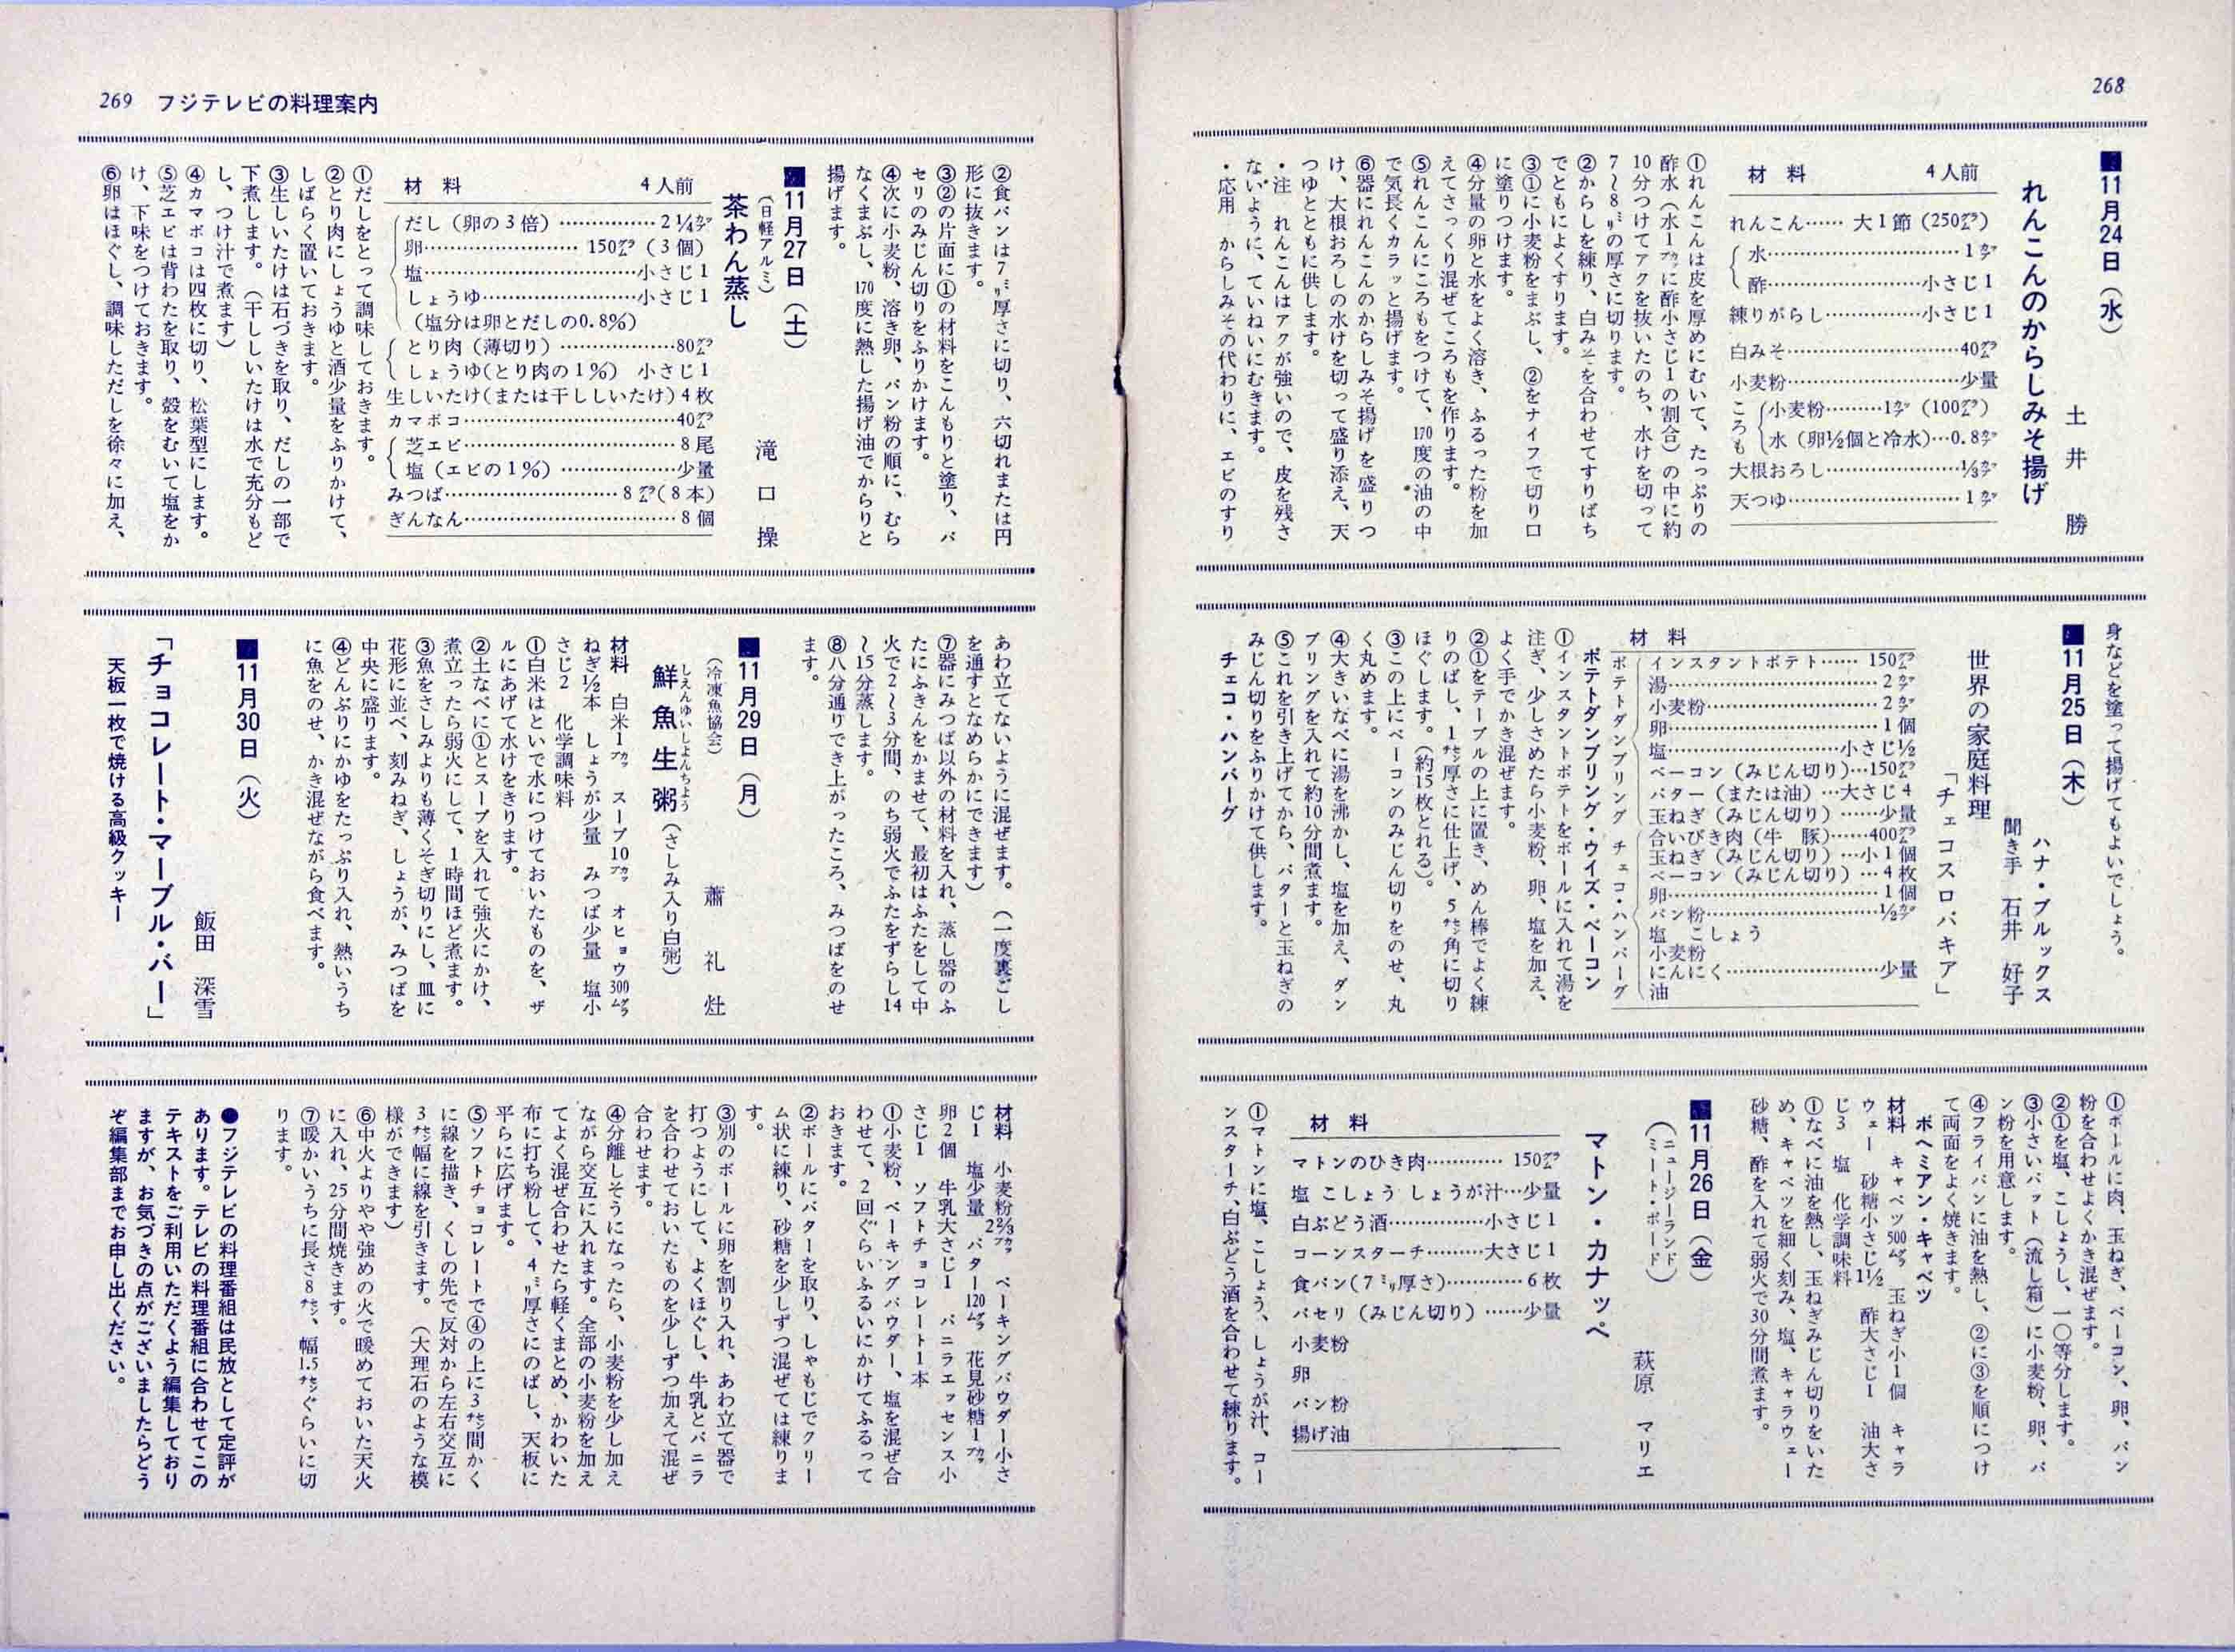 268
■11月24日（水）
土井 勝
れんこんのからしみそ揚げ
材料 4人前
れんこん……大1節（250㌘）
水……………1㌍
酢……………小さじ1
練りがらし……………小さじ1
白みそ……………40㌘
小麦粉……………少量
ころも
小麦粉………1㌍（100㌘）
水（卵½個と冷水）…0.8㌍
大根おろし……………⅓㌍
天つゆ……………1㌍
①れんこんは皮を厚めにむいて、たっぷりの
酢水（水1㌍に酢小さじ1の割合）の中に約
10分つけてアクを抜いたのち、水けを切って
7〜8㍉の厚さに切ります。
②からしを練り、白みそを合わせてすりばち
でともによくすります。
③①に小麦粉をまぶし、②をナイフで切り口
に塗りつけます。
④分量の卵と水をよく溶き、ふるった粉を加
えてさっくり混ぜてころもを作ります。
⑤れんこんにころもをつけて、170度の油の中
で気長くカラッと揚げます。
⑥器にれんこんのからしみそ揚げを盛りつ
け、大根おろしの水けを切って盛り添え、天
つゆとともに供します。
・注 れんこんはアクが強いので、皮を残さ
ないように、ていねいにむきます。
・応用 からしみその代わりに、エビのすり
身などを塗って揚げてもよいでしょう。
■11月25日（木）
ハナ・ブルックス
聞き手 石井 好子
世界の家庭料理
「チェコスロバキア」
材料
ポテトダンプリング
インスタントポテト……150㌘
湯……………2㌍
小麦粉……………2㌍
卵……………1個
塩……………小さじ½
ベーコン（みじん切り）…150㌘
バター（または油）…大さじ4
玉ねぎ（みじん切り）……少量
チェコ・ハンバーグ
合いびき肉（牛 豚）……400㌘
玉ねぎ（みじん切り）…小1個
ベーコン（みじん切り）…4枚
卵……………1個
パン粉……………½㌍
塩 こしょう
小麦粉
にんにく……………少量
油
ポテトダンプリング・ウイズ・ベーコン
①インスタントポテトをボールに入れて湯を
注ぎ、少しさめたら小麦粉、卵、塩を加え、
よく手でかき混ぜます。
②①をテーブルの上に置き、めん棒でよく練
りのばし、1㌢厚さに仕上げ、5㌢角に切り
ほぐします。（約15枚とれる）。
③この上にベーコンのみじん切りをのせ、丸
く丸めます。
④大きいなべに湯を沸かし、塩を加え、ダン
プリングを入れて約10分間煮ます。
⑤これを引き上げてから、バターと玉ねぎの
みじん切りをふりかけて供します。
チェコ・ハンバーグ
①ボールに肉、玉ねぎ、ベーコン、卵、パン
粉を合わせよくかき混ぜます。
②①を塩、こしょうし、一〇等分します。
③小さいバット（流し箱）に小麦粉、卵、パ
ン粉を用意します。
④フライパンに油を熱し、②に③を順につけ
て両面をよく焼きます。
ボヘミアン・キャベツ
材料 キャベツ500㌘ 玉ねぎ小1個 キャラ
ウェー 砂糖小さじ1½ 酢大さじ1 油大さ
じ3 塩 化学調味料
①なべに油を熱し、玉ねぎみじん切りをいた
め、キャベツを細く刻み、塩、キャラウェー
砂糖、酢を入れて弱火で30分間煮ます。
■11月26日（金）
（ニュージーランド
ミート・ボード）
萩原 マリエ
マトン・カナッペ
材料
マトンのひき肉…………150㌘
塩 こしょう しょうが汁…少量
白ぶどう酒……………小さじ1
コーンスターチ………大さじ1
食パン（7㍉厚さ）…………6枚
パセリ（みじん切り）……少量
小麦粉
卵
パン粉
揚げ油
①マトンに塩、こしょう、しょうが汁、コー
ンスターチ、白ぶどう酒を合わせて練ります。
269 フジテレビの料理案内
②食パンは7㍉厚さに切り、六切れまたは円
形に抜きます。
③②の片面に①の材料をこんもりと塗り、パ
セリのみじん切りをふりかけます。
④次に小麦粉、溶き卵、パン粉の順に、むら
なくまぶし、170度に熱した揚げ油でからりと
揚げます。
■11月27日（土）
（日軽アルミ）
滝口 操
茶わん蒸し
材料 4人前
だし（卵の3倍）……………2¼㌍
卵……………150㌘（3個）
塩……………小さじ1
しょうゆ……………小さじ1
（塩分は卵とだしの0.8%）
とり肉（薄切り）……………80㌘
しょうゆ（とり肉の1%） 小さじ1
生しいたけ（または干ししいたけ）4枚
カマボコ……………40㌘
芝エビ……………8尾
塩（エビの1%）……………少量
みつば……………8㌘（8本）
ぎんなん……………8個
①だしをとって調味しておきます。
②とり肉にしょうゆと酒少量をふりかけて、
しばらく置いておきます。
③生しいたけは石づきを取り、だしの一部で
下煮します。（干ししいたけは水で充分もど
し、つけ汁で煮ます）
④カマボコは四枚に切り、松葉型にします。
⑤芝エビは背わたを取り、殻をむいて塩をか
け、下味をつけておきます。
⑥卵はほぐし、調味しただしを徐々に加え、
あわ立てないように混ぜます。（一度裏ごし
を通すとなめらかにできます）
⑦器にみつば以外の材料を入れ、蒸し器のふ
たにふきんをかませて、最初はふたをして中
火で2〜3分間、のち弱火でふたをずらし14
〜15分蒸します。
⑧八分通りでき上がったころ、みつばをのせ
ます。
■11月29日（月）
（冷凍魚協会）
蕭 礼 灶
鮮魚生粥（さしみ入り白粥）
しえんゆいしよんちよう
材料 白米1㌍ スープ10㌍ オヒョウ300㌘
ねぎ½本 しょうが少量 みつば少量 塩小
さじ2 化学調味料
①白米はといで水につけておいたものを、ザ
ルにあげて水けをきります。
②土なべに①とスープを入れて強火にかけ、
煮立ったら弱火にして、1時間ほど煮ます。
③魚をさしみよりも薄くそぎ切りにし、皿に
花形に並べ、刻みねぎ、しょうが、みつばを
中央に盛ります。
④どんぶりにかゆをたっぷり入れ、熱いうち
に魚をのせ、かき混ぜながら食べます。
■11月30日（火）
飯田 深雪
「チョコレート・マーブル・バー」
天板一枚で焼ける高級クッキー
材料 小麦粉2⅔㌍ ベーキングパウダー小さ
じ1 塩少量 バター120㌘ 花見砂糖1㌍
卵2個 牛乳大さじ1 バニラエッセンス小
さじ1 ソフトチョコレート1本
①小麦粉、ベーキングパウダー、塩を混ぜ合
わせて、2回ぐらいふるいにかけてふるって
おきます。
②ボールにバターを取り、しゃもじでクリー
ム状に練り、砂糖を少しずつ混ぜては練りま
す。
③別のボールに卵を割り入れ、あわ立て器で
打つようにして、よくほぐし、牛乳とバニラ
を合わせておいたものを少しずつ加えて混ぜ
合わせます。
④分離しそうになったら、小麦粉を少し加え
ながら交互に入れます。全部の小麦粉を加え
てよく混ぜ合わせたら軽くまとめ、かわいた
布に打ち粉して、4㍉厚さにのばし、天板に
平らに広げます。
⑤ソフトチョコレートで④の上に3㌢間かく
に線を描き、くしの先で反対から左右交互に
3㌢幅に線を引きます。（大理石のような模
様ができます）
⑥中火よりやや強めの火で暖めておいた天火
に入れ、25分間焼きます。
⑦暖かいうちに長さ8㌢、幅1.5㌢ぐらいに切
ります。
●フジテレビの料理番組は民放として定評が
あります。テレビの料理番組に合わせてこの
テキストをご利用いただくよう編集しており
ますが、お気づきの点がございましたらどう
ぞ編集部までお申し出ください。